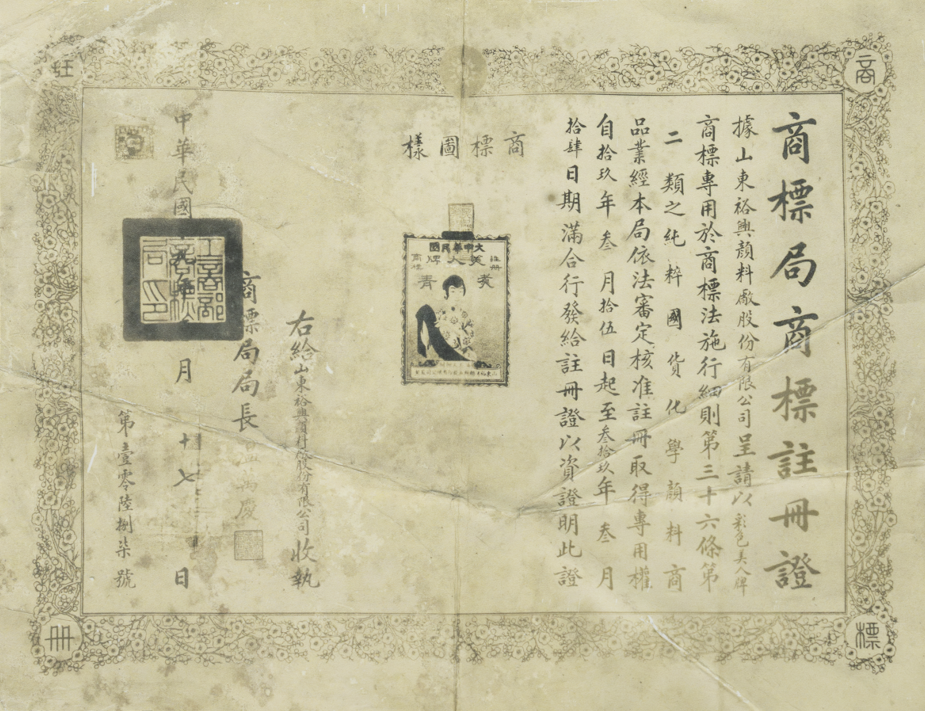 商標局商標註冊證
據山東裕興顏料廠股份有限公司呈請以彩色美人牌
商標專用於商標法施行細則第三十六條第
二類之純粹國貨化學顏料商
品業經本局依法審定核准註冊取得專用權
自拾玖年叁月拾伍日起至叁拾玖年叁月
拾肆日期滿合行發給註冊證以資證明此證
商標圖樣
大中華民國
註冊
美人牌
商標
青
右給山東裕興顏料廠股份有限公司收執
商標局局長
中華民國
月十七日
第壹零陸捌柒號
商
標
註
冊